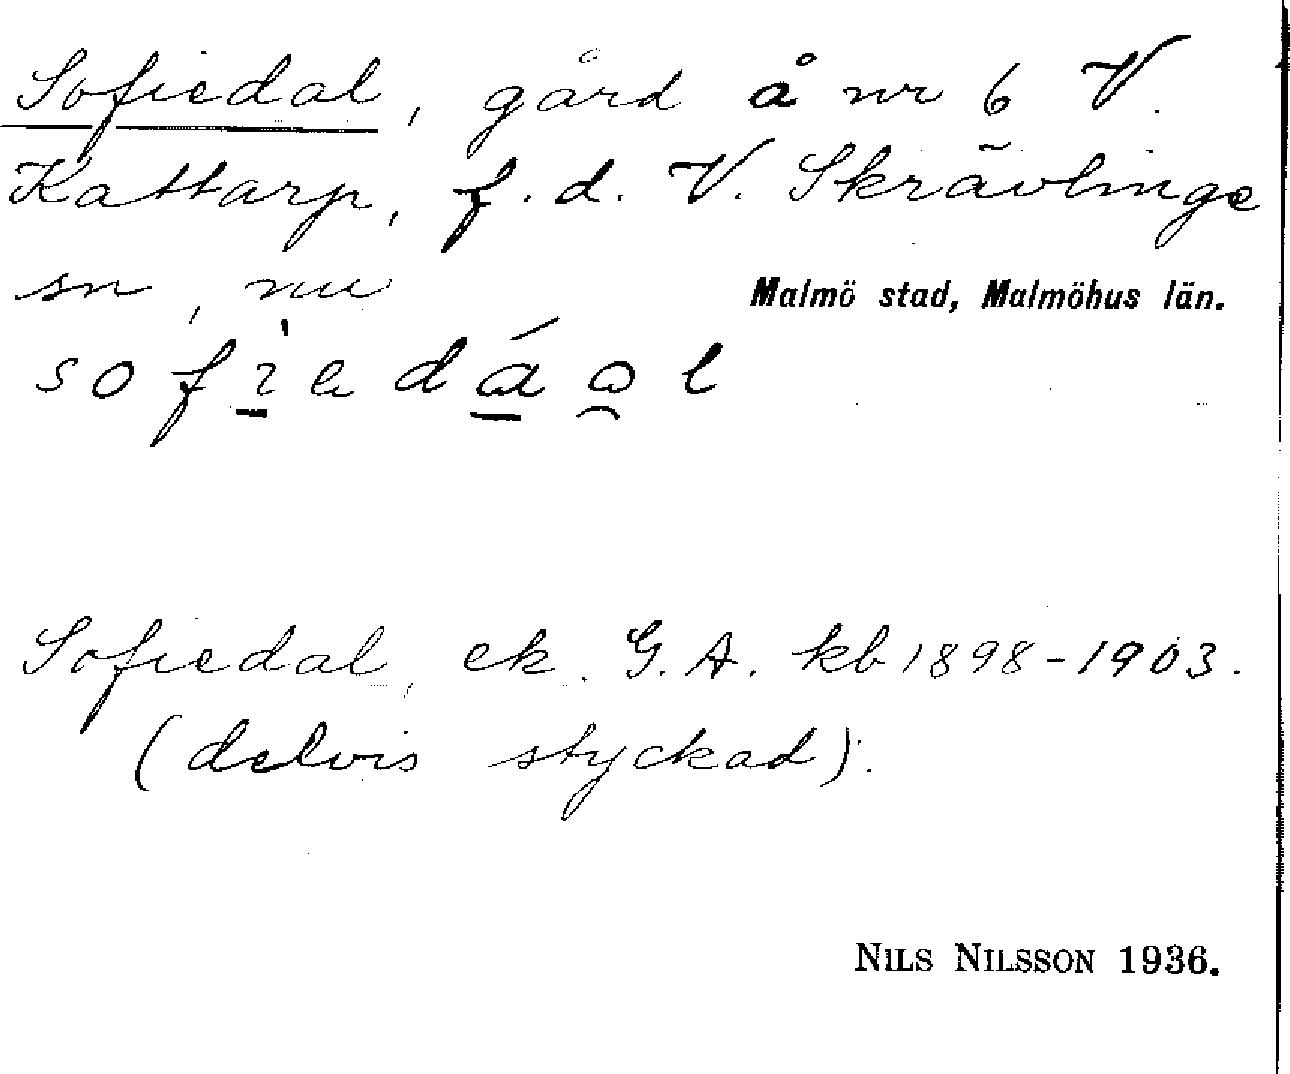 Sofiedal, gård å nr 6 V.
Kattarp, f.d. V. Skrävlinge
sn, nu Malmö stad, Malmöhus län.
Sofiedal, ek. G.A. kb 1898-1903.
(delvis styckad).
NILS NILSSON 1936.